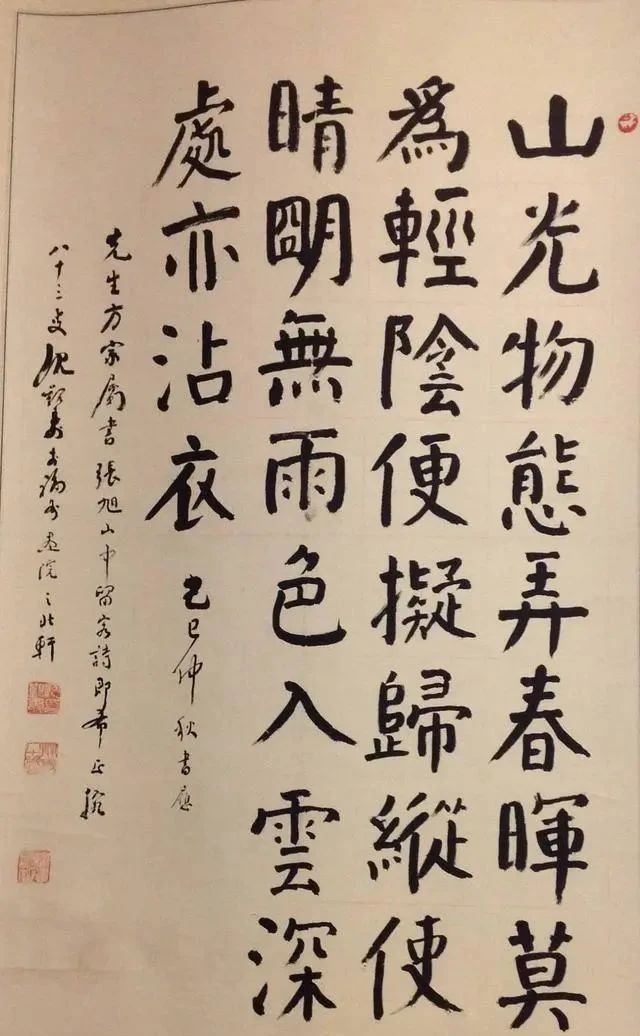 山光物態弄春暉莫
爲輕陰便擬歸縱使
晴明無雨色入雲深
處亦沾衣 己巳仲秋書應
先生方家屬書張旭山中留客詩即希正腕
八十三叟畫院之北軒